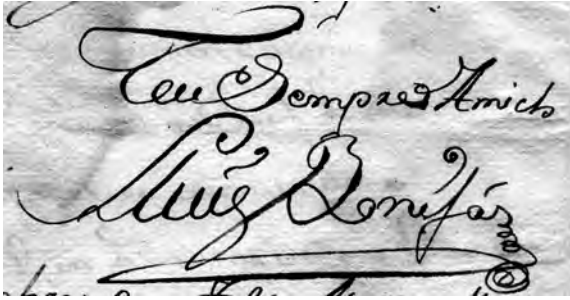 Teu Sempre Amich
Lluis Bonifás